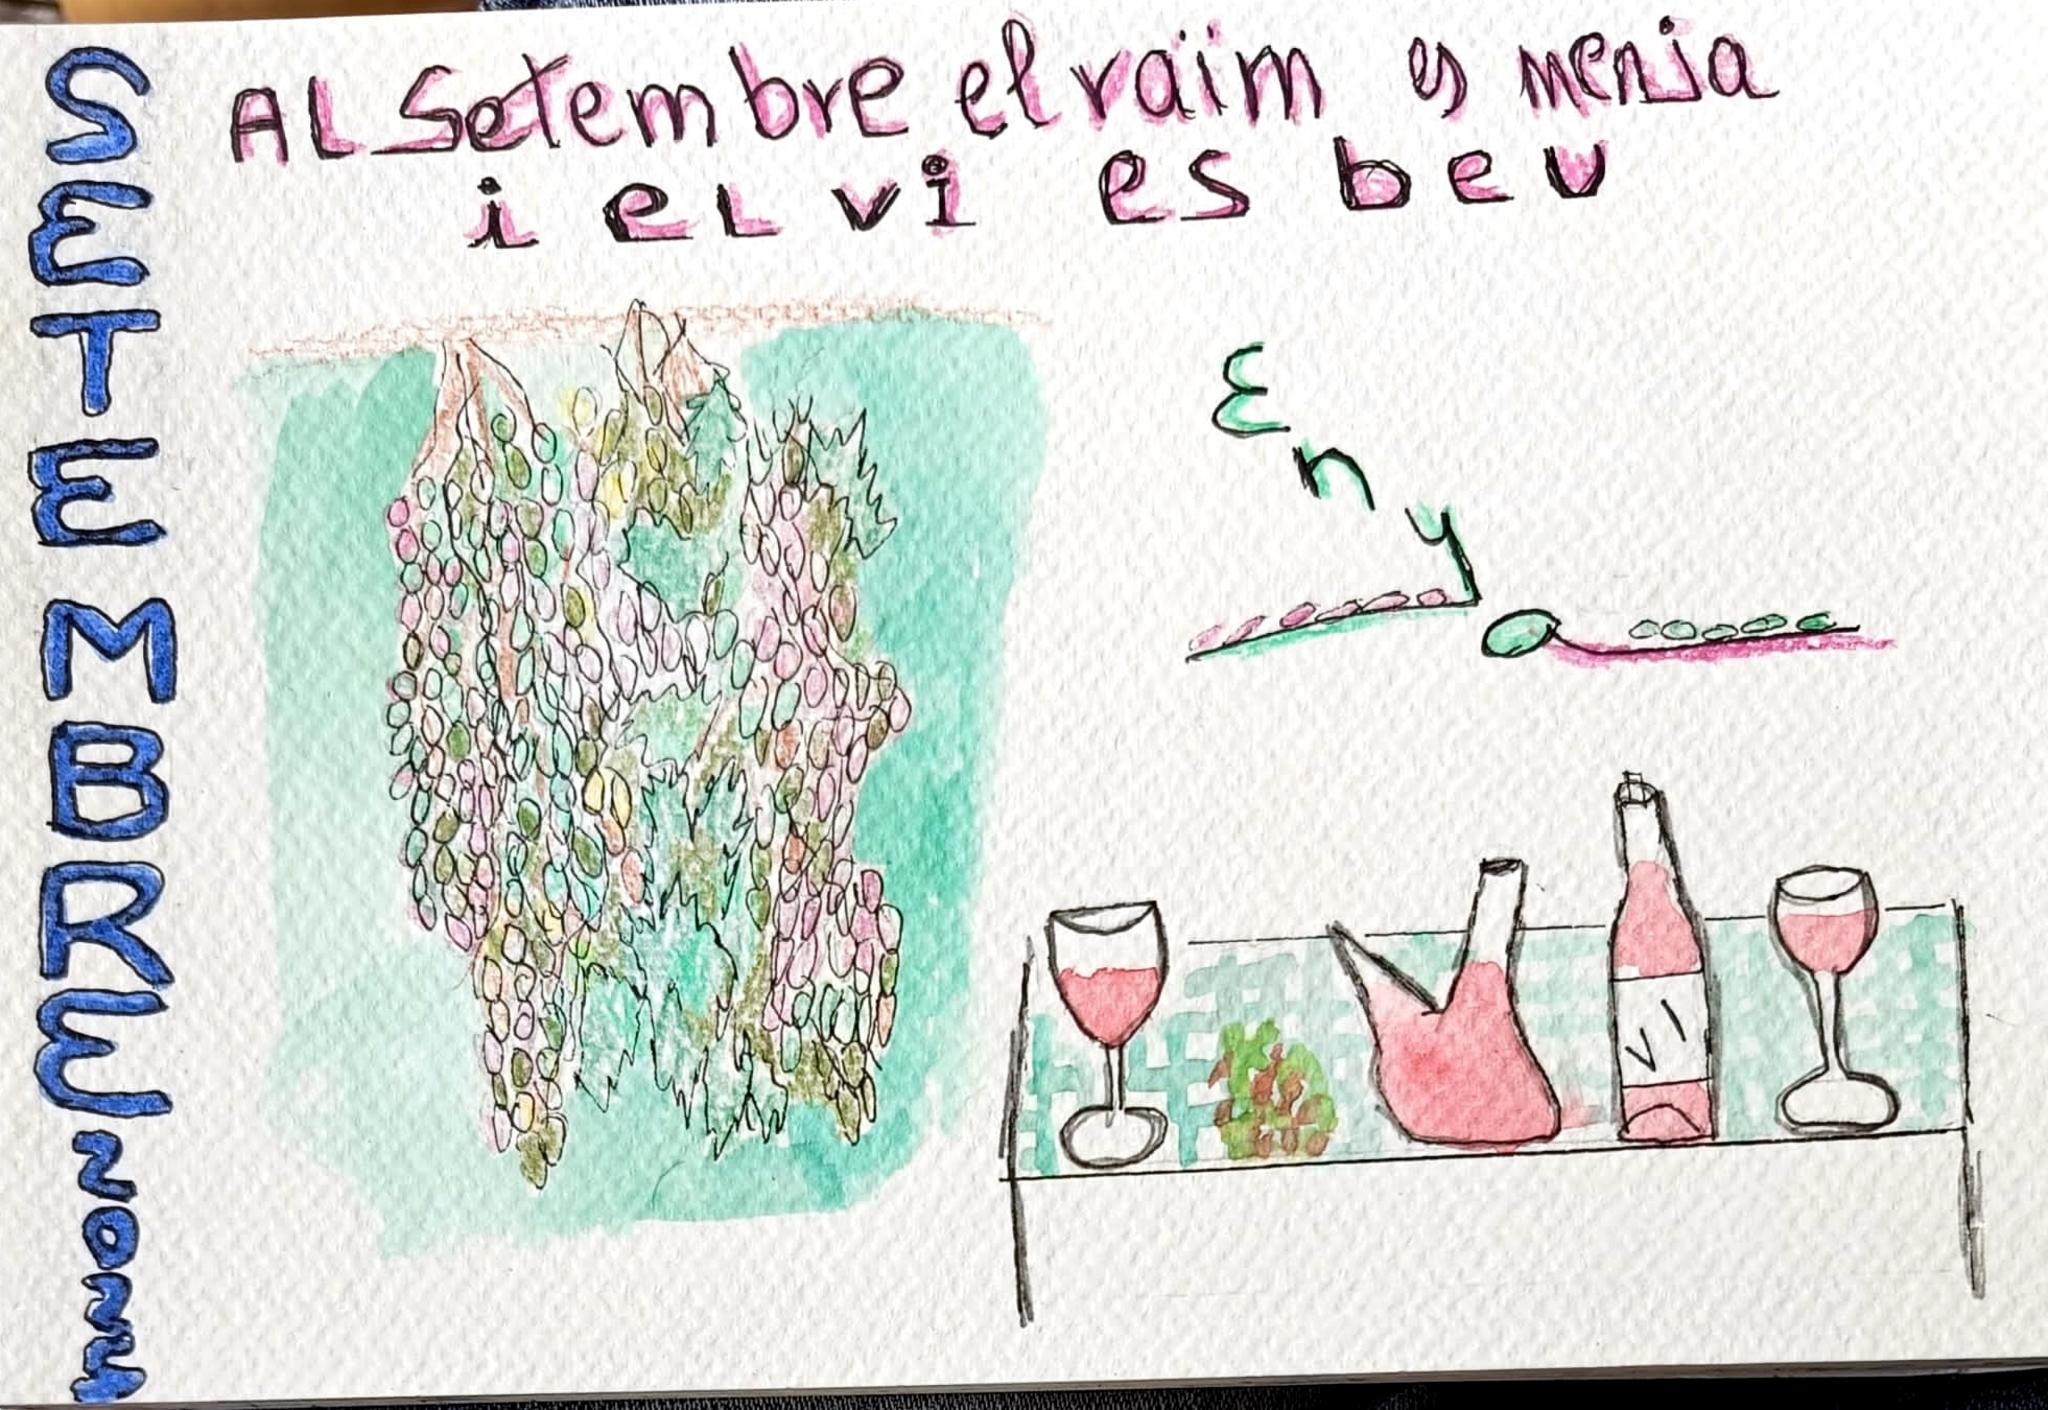 SETEMBRE 2024
AL Setembre el raïm es menja
i el vi es beu
Eny
VI